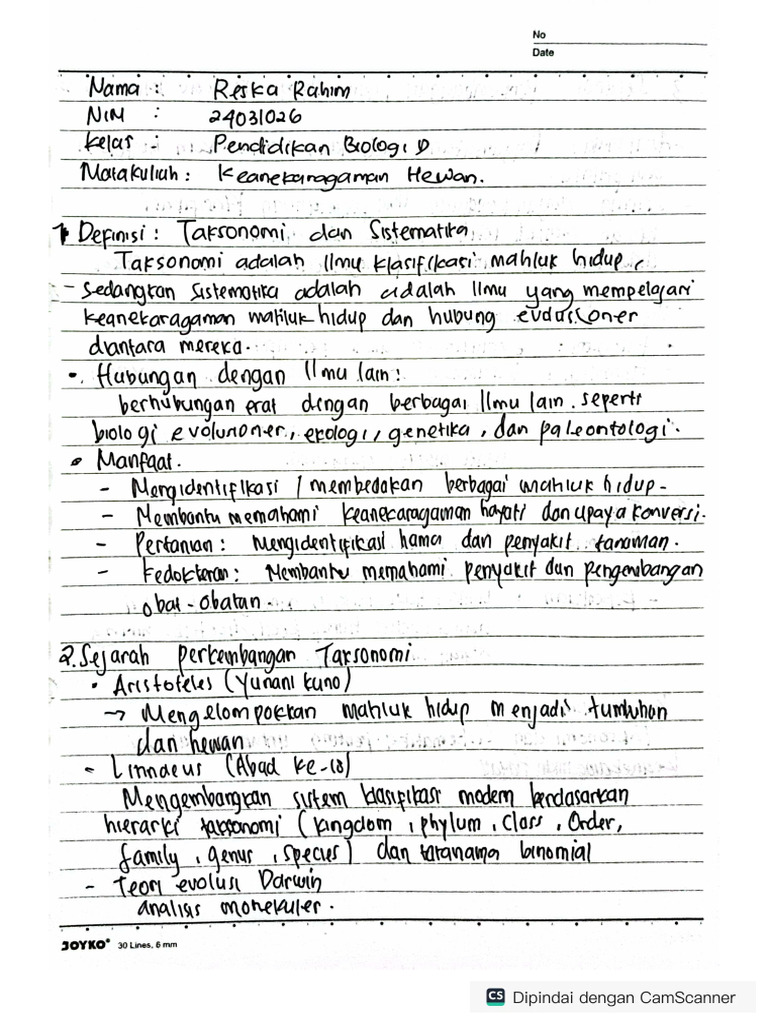 No
Date
Nama : Reska Rahim
NIM : 24031026
Kelas : Pendidikan Biologi D
Matakuliah : Keanekaragaman Hewan.
1. Definisi : Taksonomi dan Sistematika
Taksonomi adalah Ilmu klasifikasi mahluk hidup,
- Sedangkan Sistematika adalah adalah Ilmu yang mempelajari
keanekaragaman mahluk hidup dan hubung evolusioner
diantara mereka.
• Hubungan dengan Ilmu lain :
berhubungan erat dengan berbagai Ilmu lain. seperti
biologi evolusioner, ekologi, genetika, dan paleontologi.
• Manfaat.
- Mengidentifikasi / membedakan berbagai mahluk hidup-
- Membantu memahami keanekaragaman hayati dan upaya konversi.
- Pertanian : Mengidentifikasi hama dan penyakit tanaman.
- Kedokteran : Membantu memahami penyakit dan pengembangan
obat-obatan.
2. Sejarah perkembangan Taksonomi
• Aristoteles (Yunani kuno)
→ Mengelompokkan mahluk hidup menjadi tumbuhan
dan hewan
- Linnaeus (Abad ke-18)
Mengembangkan sistem klasifikasi modern berdasarkan
hierarki taksonomi (kingdom, phylum, Class, Order,
family, genus, species) dan tatanama binomial
- Teori evolusi Darwin
analisis monekuler.
JOYKO 30 Lines, 6 mm
CS Dipindai dengan CamScanner